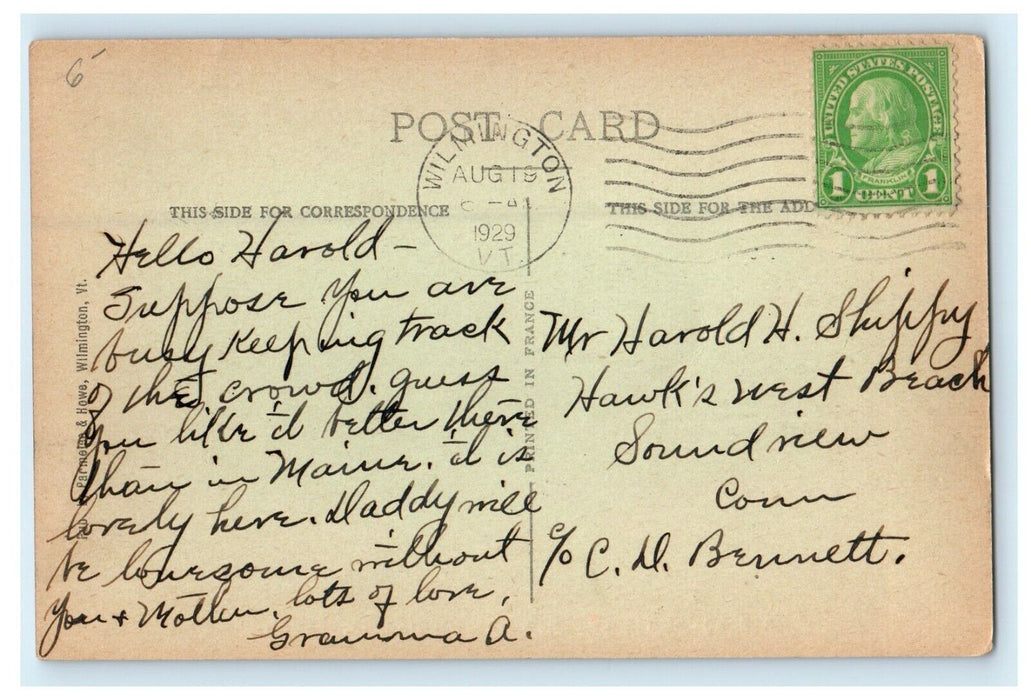 6
POST CARD
UNITED STATES POSTAGE
FRANKLIN
1 CENT 1
WILMINGTON
AUG 19
1929
VT.
THIS SIDE FOR CORRESPONDENCE
THIS SIDE FOR THE ADD
Hello Harold –
Suppose you are
busy keeping track
of the crowd. guess
you like it better there
than in Maine. it is
lovely here. Daddy will
be lonesome without
you + Mother. lots of love,
Gramma A.
Parmelee & Howe, Wilmington, Vt.
PRINTED IN FRANCE
Mr Harold H. Shippy
Hawk's West Beach
Sound view
Conn
c/o C. D. Bennett.